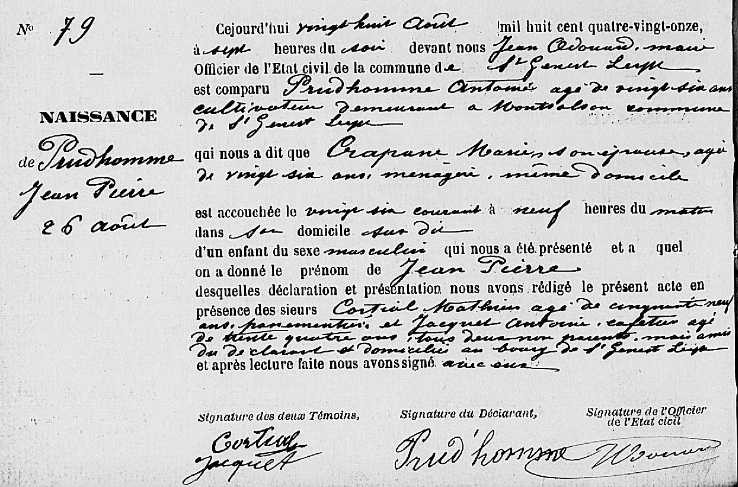 No 79
NAISSANCE
de Prudhomme
Jean Pierre
26 août
Cejourd'hui vingt huit Août mil huit cent quatre-vingt-onze,
à sept heures du soir devant nous Jean Odouard, maire
Officier de l'Etat civil de la commune de St Genest Lerpt
est comparu Prudhomme Antoine agé de vingt six ans
cultivateur demeurant à Montsalson commune
de St Genest Lerpt
qui nous a dit que Crapanne Marie, son épouse, agée
de vingt six ans, ménagère, même domicile
est accouchée le vingt six courant à neuf heures du matin
dans son domicile sus dit
d'un enfant du sexe masculin qui nous a été présenté et a quel
on a donné le prénom de Jean Pierre
desquelles déclaration et présentation nous avons rédigé le présent acte en
présence des sieurs Cortial Mathieu agé de cinquante neuf
ans, et Jacquet Antoine, cafetier agé
de trente quatre ans, tous deux non parents, mais amis
du déclarant et domiciliés au bourg de St Genest Lerpt
et après lecture faite nous avons signé avec eux
Signature des deux Témoins, Signature du Déclarant, Signature de l'Officier
de l'Etat civil
Cortial
Jacquet
Prud'homme